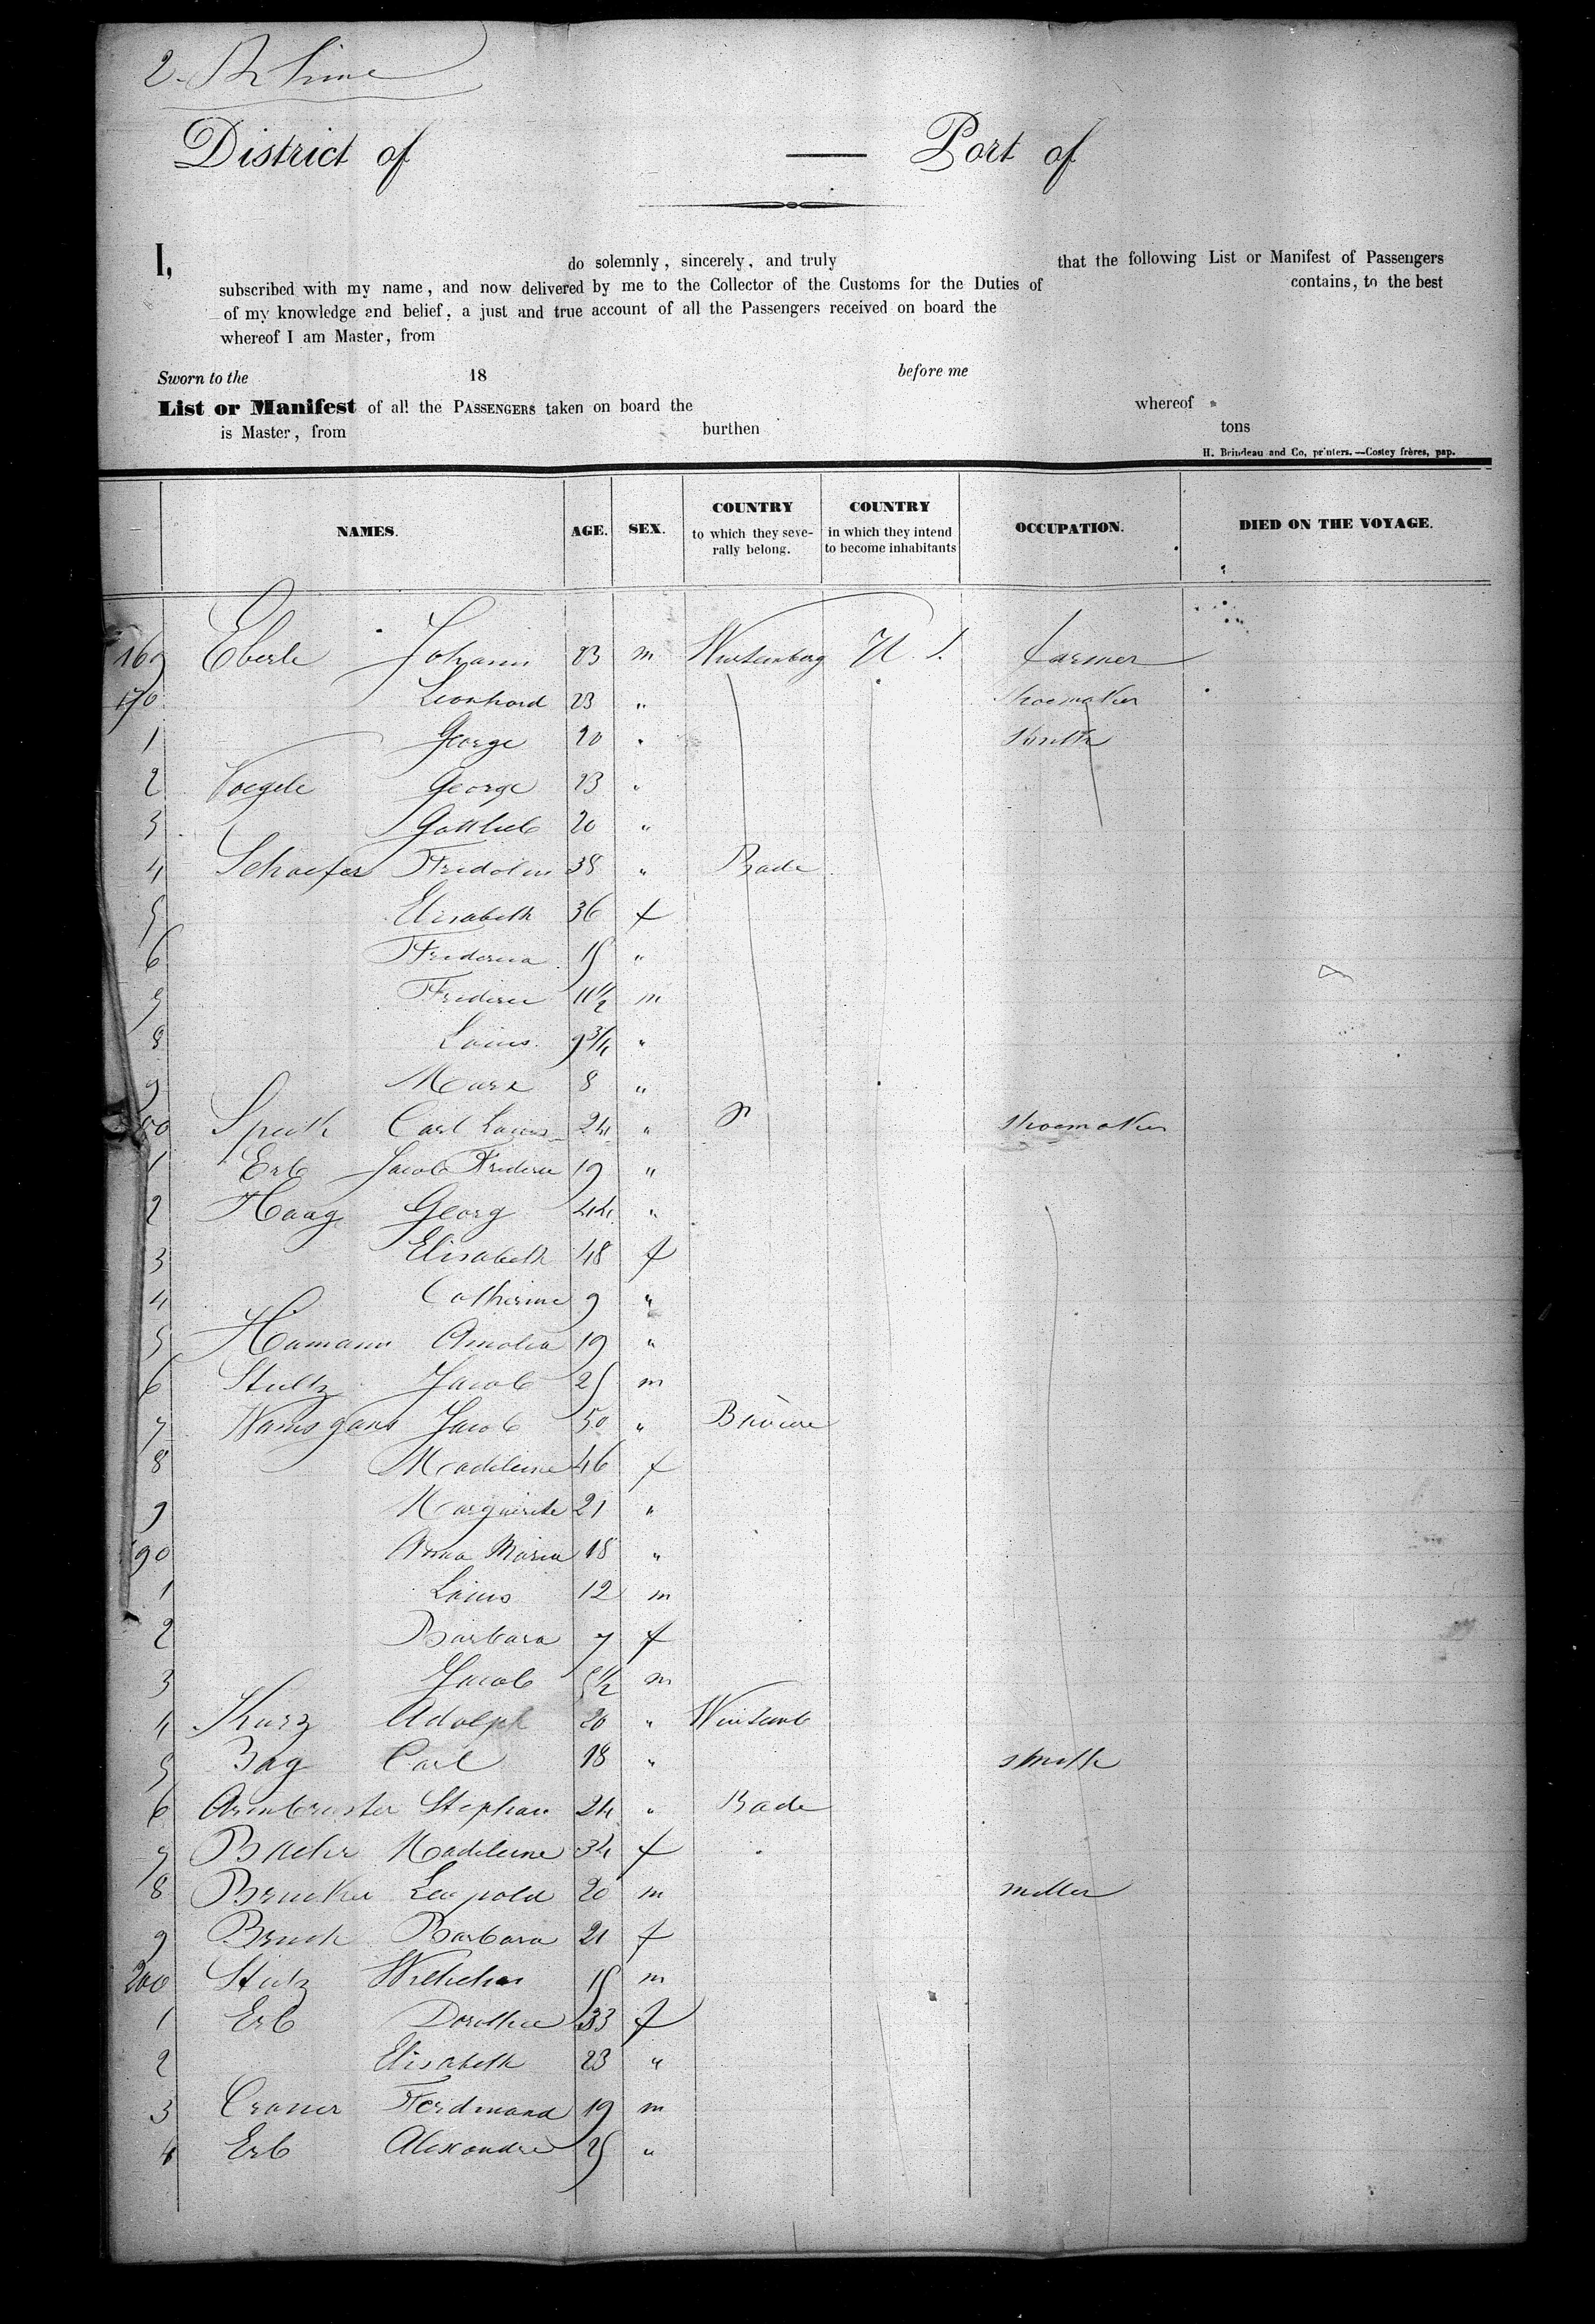 2.
District of — Port of
I, do solemnly, sincerely, and truly that the following List or Manifest of Passengers
subscribed with my name, and now delivered by me to the Collector of the Customs for the Duties of contains, to the best
of my knowledge and belief, a just and true account of all the Passengers received on board the
whereof I am Master, from
Sworn to the 18 before me
List or Manifest of all the PASSENGERS taken on board the whereof
is Master, from burthen tons
H. Brindeau and Co, printers. — Costey frères, pap.
NAMES. AGE. SEX. COUNTRY to which they severally belong. COUNTRY in which they intend to become inhabitants OCCUPATION. DIED ON THE VOYAGE.
169 Eberle Johann m Wurtemberg U. S. farmer
170 Leonhard 23 " Shoemaker
1 George 20 " Smith
2 Voegele George 23 "
3 Gottlieb 20 "
4 Schaefer Fridolin 38 " Bade
5 Elisabeth 36 f
6 Frederica 15 "
7 Frideric 11 1/2 m
8 Louis 9 3/4 "
9 Marx 8 "
180 Speth Carl Louis 24 " shoemaker
1 Erb Jacob Frideric 19 "
2 Haag Georg 44 "
3 Elisabeth 48 f
4 Catherine 9 "
5 Hamann Amalia 19 "
6 Stultz Jacob 25 m
7 Wamsgans Jacob 50 " Baviere
8 Madeleine 46 f
9 Marguerite 21 "
190 Anna Maria 18 "
1 Louis 12 m
2 Barbara 7 f
3 Jacob 5 1/2 m
4 Kurz Adolph 20 " Wurtemb
5 Carl 18 " smith
6 Armbruster Stephan 24 " Bade
7 Madeleine 34 f
8 Brucker Leopold 20 m miller
9 Bruck Barbara 21 f
200 Stutz Wilhelm 15 m
1 Erb Dorothee 33 f
2 Elisabeth 23 "
3 Cramer Ferdinand 19 m
4 Erb Alexandre 25 "